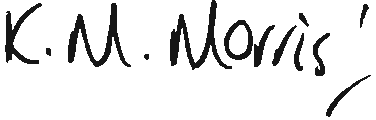 K. M. Morris